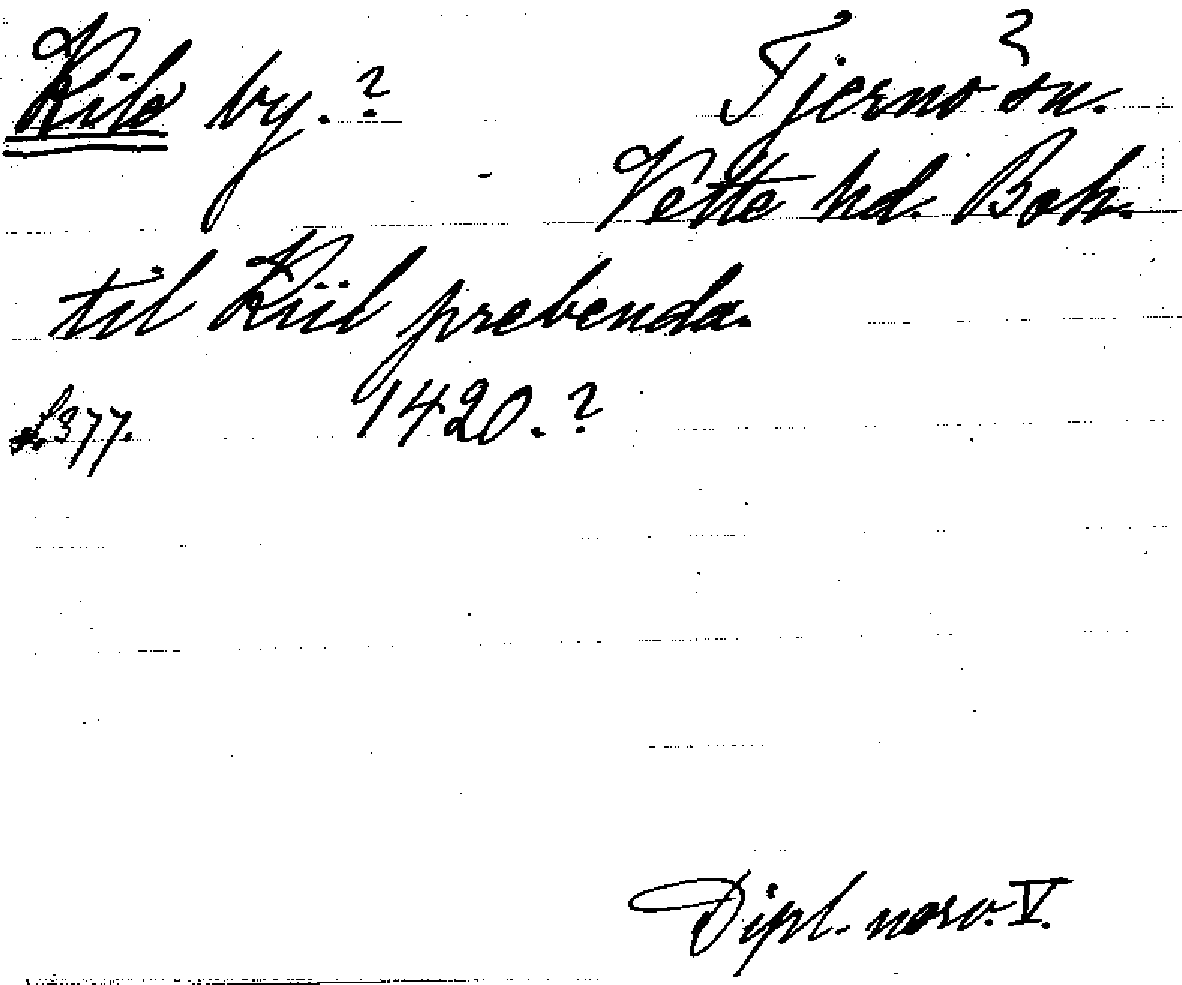 Kile by. ? Tjernö sn. ?
Vette hd. Boh.
til Kiil prebenda.
s. 377. 1420. ?
Dipl. norv. V.